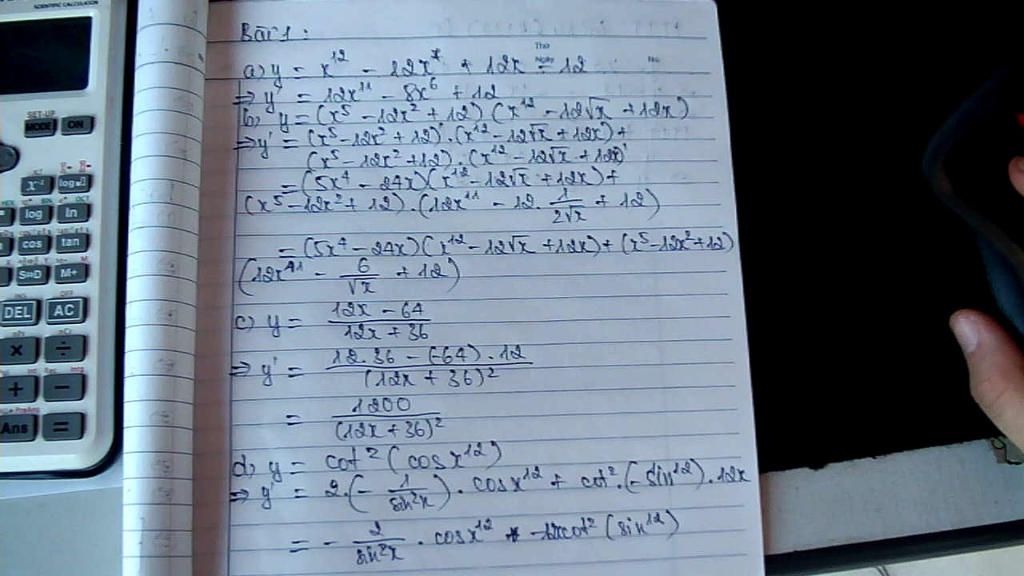 SCIENTIFIC CALCULATOR
SET-UP
MODE ON
x⁻¹ log
log ln
cos tan
S⇔D M+
DEL AC
× ÷
+ −
Ans =
Bài 1:
Thứ
Ngày
No
a) y = x^12 - 12x^7 + 12x - 12
⇒ y' = 12x^11 - 8x^6 + 12
b) y = (x^5 - 12x^2 + 12)(x^12 - 12√x + 12x)
⇒ y' = (x^5 - 12x^2 + 12)'.(x^12 - 12√x + 12x) +
(x^5 - 12x^2 + 12).(x^12 - 12√x + 12x)'
= (5x^4 - 24x)(x^12 - 12√x + 12x) +
(x^5 - 12x^2 + 12).(12x^11 - 12.1/(2√x) + 12)
= (5x^4 - 24x)(x^12 - 12√x + 12x) + (x^5 - 12x^2 + 12)
(12x^11 - 6/√x + 12)
c) y = (12x - 64)/(12x + 36)
⇒ y' = (12.36 - (-64).12)/(12x + 36)^2
= 1200/(12x + 36)^2
d) y = cot^2(cosx^12)
⇒ y' = 2.(-1/sin^2x).cosx^12 + cot^2.(-sin^12).12x
= -2/sin^2x . cosx^12 - 12xcot^2(sin^12)